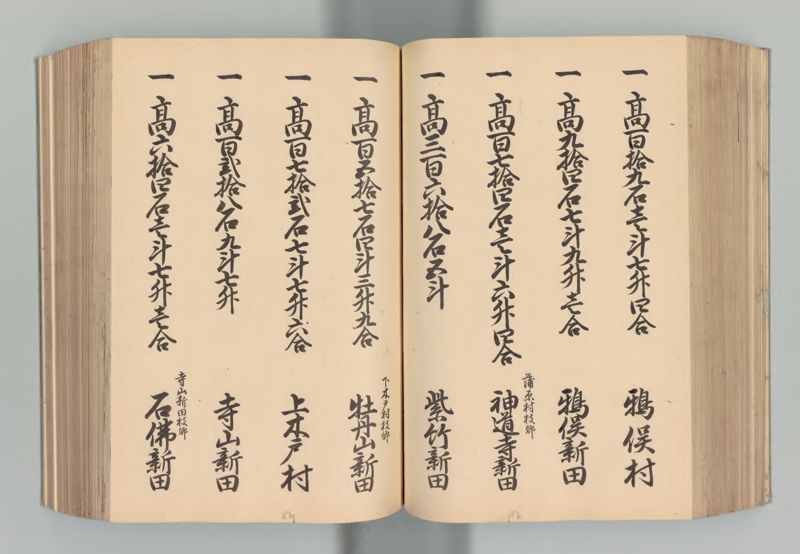 一 高百拾九石壱斗七升四合 鴉俣村
一 高九拾四石七斗九升壱合 鴉俣新田
一 高百七拾四石壱斗六升四合 蒲原村枝郷 神道寺新田
一 高三百六拾八石五斗 紫竹新田
一 高百五拾七石四斗三升九合 下木戸村枝郷 牡丹山新田
一 高百七拾弐石七斗七升六合 上木戸村
一 高百弐拾八石九斗七升 寺山新田
一 高六拾四石壱斗七升壱合 寺山新田枝郷 石佛新田